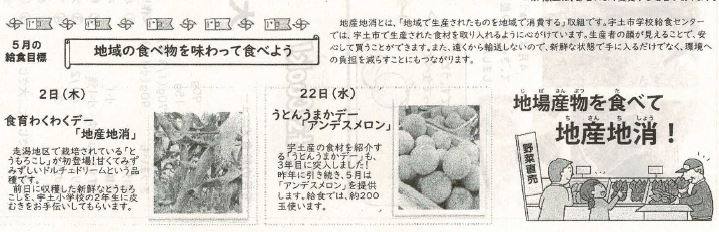 5月の
給食目標
地域の食べ物を味わって食べよう
地産地消とは、「地域で生産されたものを地域で消費する」取組です。宇土市学校給食センター
では、宇土市で生産された食材を取り入れるように心がけています。生産者の顔が見えることで、安
心して買うことができます。また、遠くから輸送しないので、新鮮な状態で手に入るだけでなく、環境へ
の負担を減らすことにもつながります。
2日(木)
食育わくわくデー
「地産地消」
走潟地区で栽培されている「と
うもろこし」が初登場!甘くてみず
みずしいドルチェドリームという品
種です。
前日に収穫した新鮮なとうもろ
こしを、宇土小学校の2年生に皮
むきをお手伝いしてもらいます。
22日(水)
うとんうまかデー
「アンデスメロン」
宇土産の食材を紹介す
る「うとんうまかデー」も、
3年目に突入しました!
昨年に引き続き、5月は
「アンデスメロン」を提供
します。給食では、約200
玉使います。
じばさんぶつ た
地場産物を食べて
ちさんちしょう
地産地消!
野菜直売